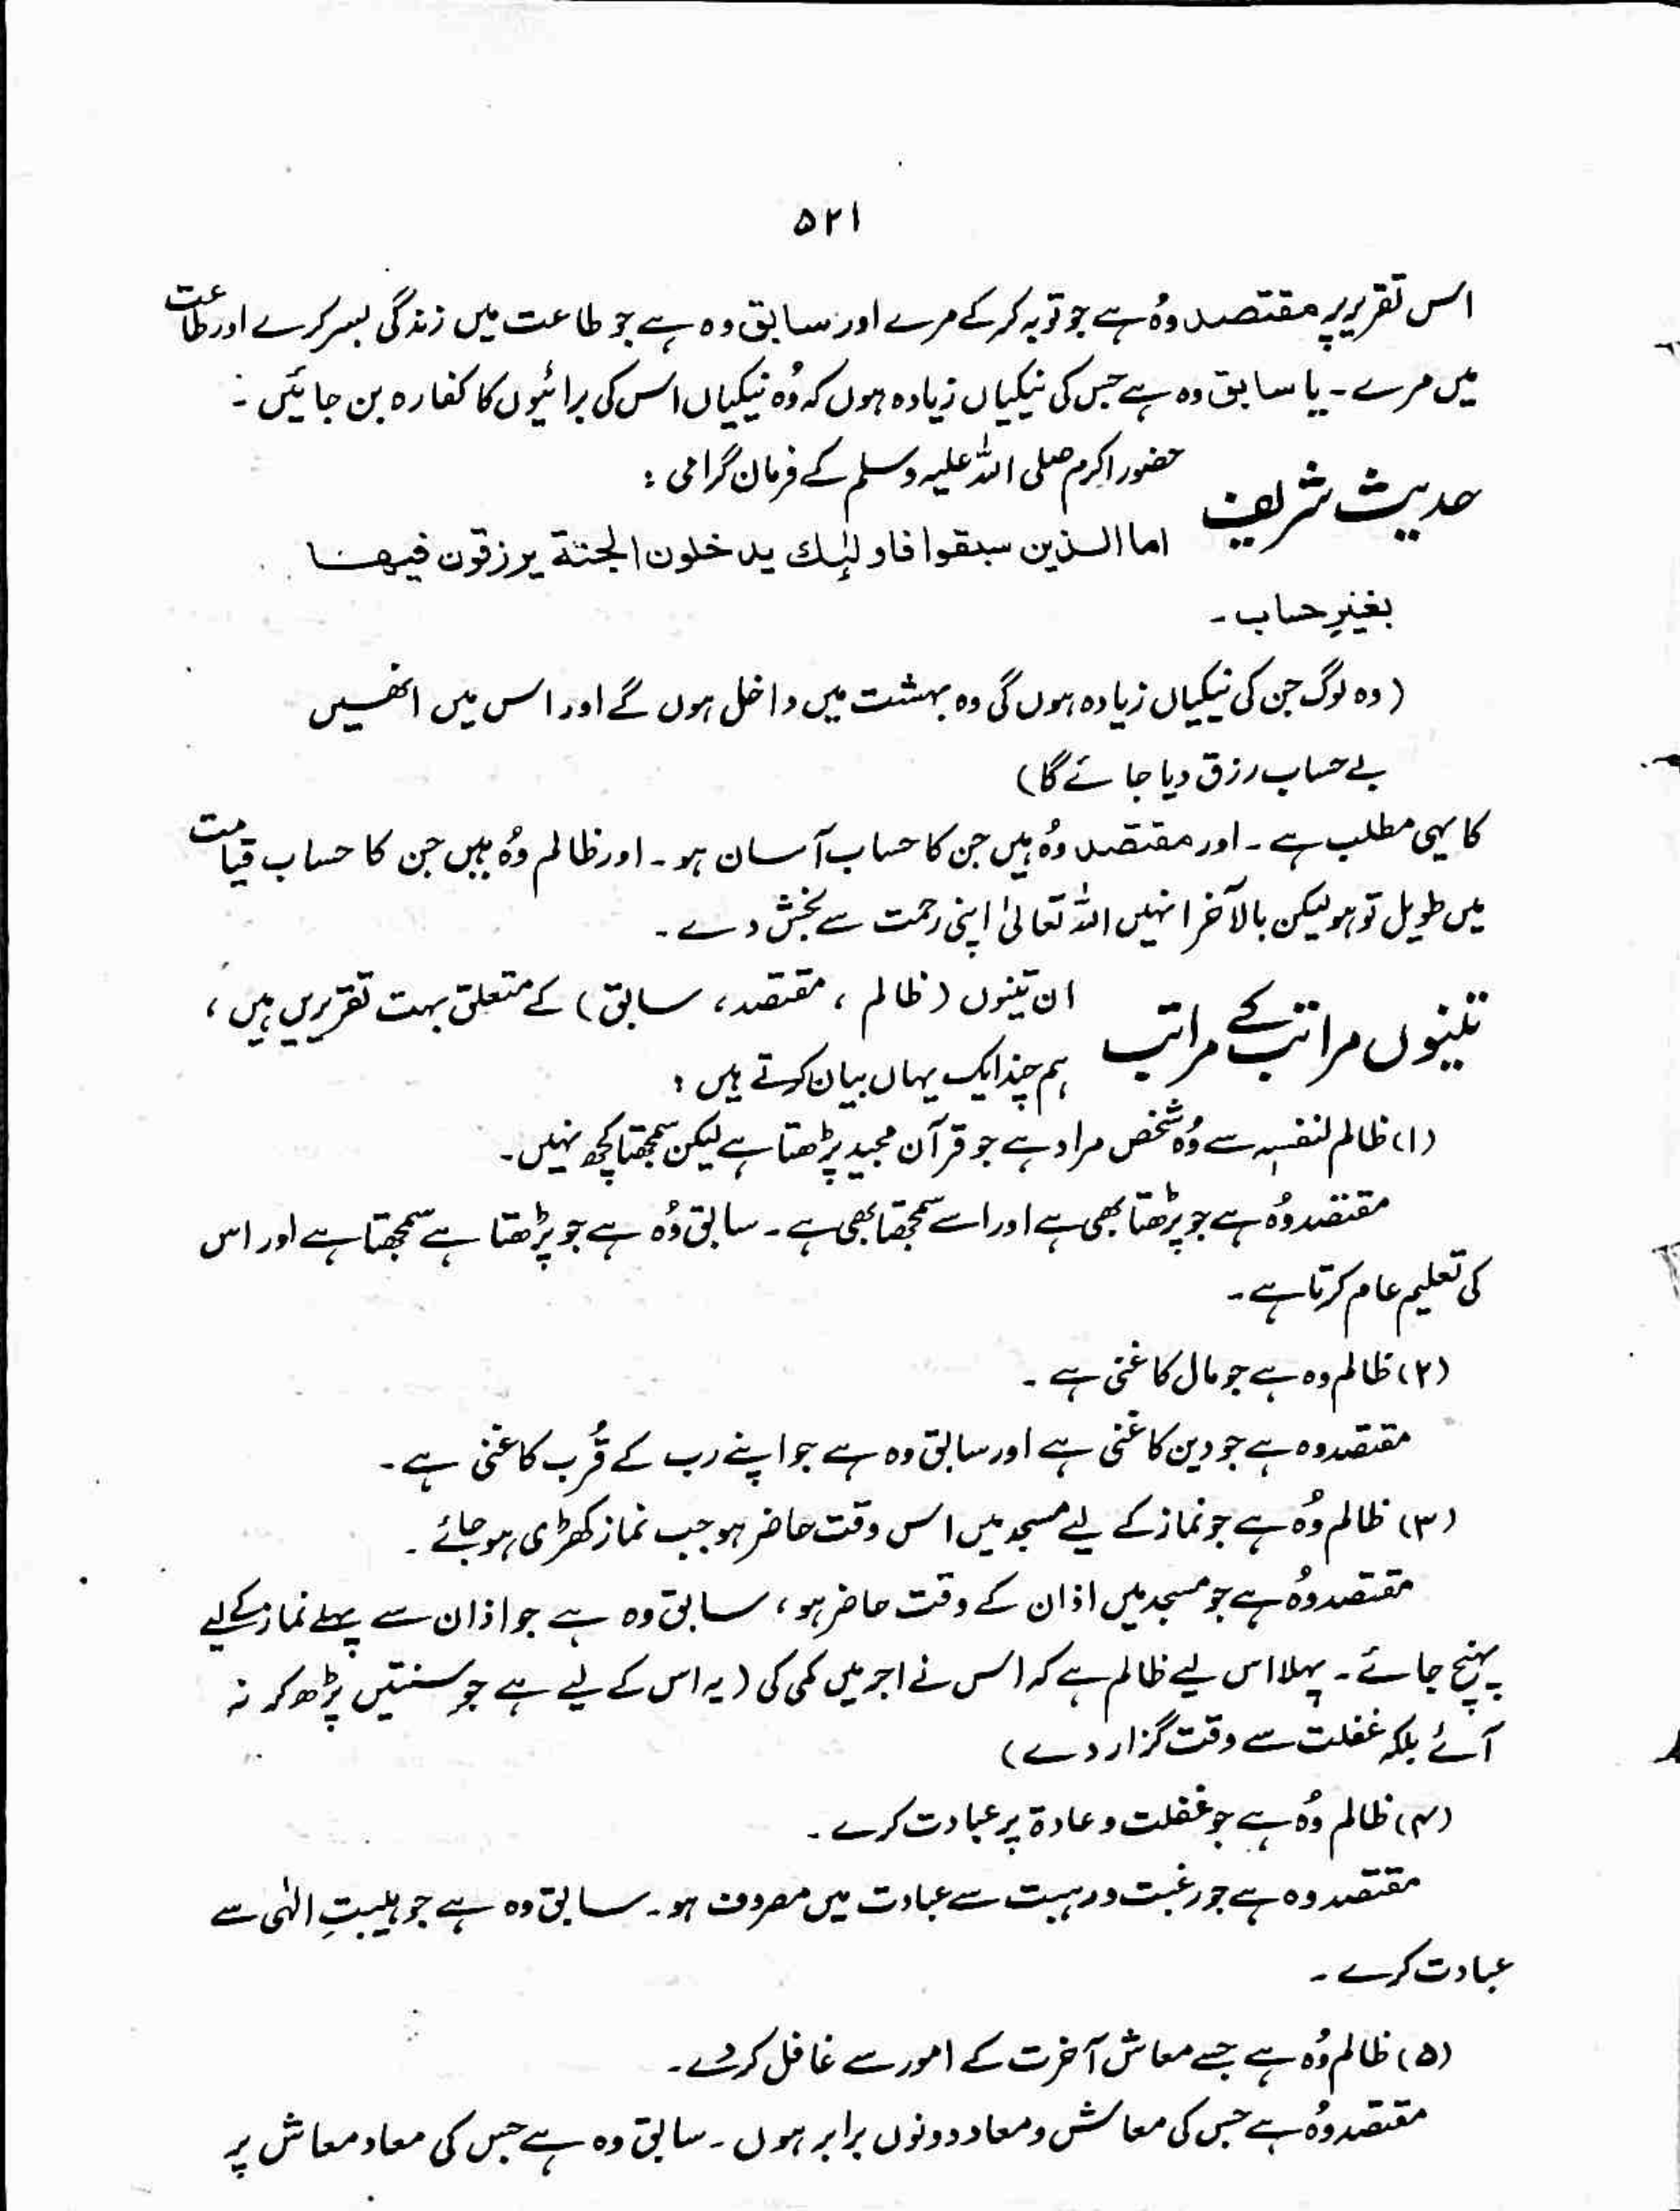 ۵۲۱
اس تقریر پر مقتصد وُہ ہے جو توبہ کر کے مرے اور سابق وہ ہے جو طاعت میں زندگی بسر کرے اور طاعت
میں مرے۔ یا سابق وہ ہے جس کی نیکیاں زیادہ ہوں کہ وُہ نیکیاں اس کی برائیوں کا کفارہ بن جائیں۔
حدیث شریف
حضور اکرم صلی اللہ علیہ وسلم کے فرمان گرامی :
اما الذین سبقوا فاولٰئِك یدخلون الجنة یرزقون فیھا
بغیرِ حساب۔
(وہ لوگ جن کی نیکیاں زیادہ ہوں گی وہ بہشت میں داخل ہوں گے اور اس میں انھیں
بے حساب رزق دیا جائے گا)
کا یہی مطلب ہے۔ اور مقتصد وُہ ہیں جن کا حساب آسان ہو۔ اور ظالم وُہ ہیں جن کا حساب قیامت
میں طویل تو ہو لیکن بالآخر انہیں اللہ تعالیٰ اپنی رحمت سے بخش دے۔
تینوں مراتب کے مراتب
ان تینوں (ظالم ، مقتصد، سابق) کے متعلق بہت تقریریں ہیں،
ہم چند ایک یہاں بیان کرتے ہیں :
(۱) ظالم لنفسہٖ سے وُہ شخص مراد ہے جو قرآن مجید پڑھتا ہے لیکن سمجھتا کچھ نہیں۔
مقتصد وُہ ہے جو پڑھتا بھی ہے اور اسے سمجھتا بھی ہے۔ سابق وُہ ہے جو پڑھتا ہے سمجھتا ہے اور اس
کی تعلیم عام کرتا ہے۔
(۲) ظالم وہ ہے جو مال کا غنی ہے۔
مقتصد وہ ہے جو دین کا غنی ہے اور سابق وہ ہے جو اپنے رب کے قُرب کا غنی ہے۔
(۳) ظالم وُہ ہے جو نماز کے لیے مسجد میں اس وقت حاضر ہو جب نماز کھڑی ہو جائے۔
مقتصد وُہ ہے جو مسجد میں اذان کے وقت حاضر ہو، سابق وہ ہے جو اذان سے پہلے نماز کے لیے
پہنچ جائے۔ پہلا اس لیے ظالم ہے کہ اس نے اجر میں کمی کی (یہ اس کے لیے ہے جو سنتیں پڑھ کر نہ
آئے بلکہ غفلت سے وقت گزار دے)
(۴) ظالم وُہ ہے جو غفلت و عادة پر عبادت کرے۔
مقتصد وہ ہے جو رغبت و رہبت سے عبادت میں مصروف ہو۔ سابق وہ ہے جو ہیبتِ الٰہی سے
عبادت کرے۔
(۵) ظالم وُہ ہے جسے معاش آخرت کے امور سے غافل کر دے۔
مقتصد وُہ ہے جس کی معاش و معاد دونوں برابر ہوں۔ سابق وہ ہے جس کی معاد معاش پر